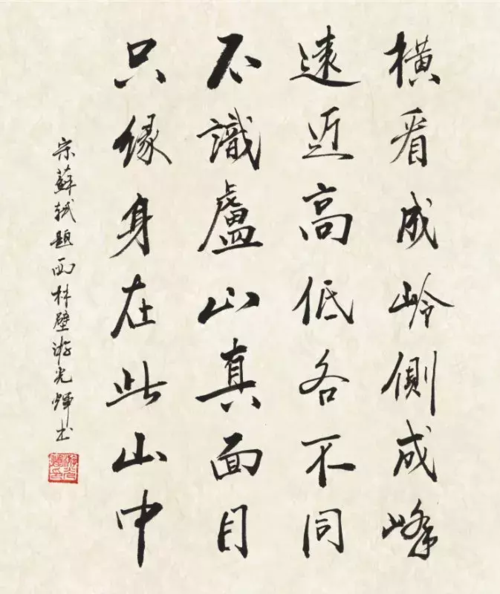 橫看成岭側成峰
遠近高低各不同
不識廬山真面目
只缘身在此山中
宋蘇軾題西林壁游光輝书